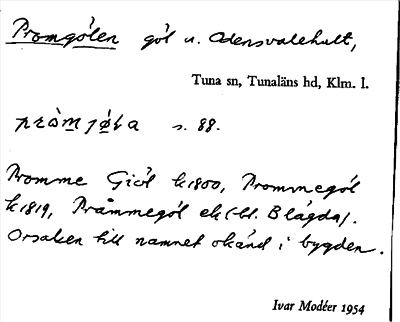 Promgölen göl u. Odensvalehult,
Tuna sn, Tunaläns hd, Klm. l.
s. 88.
Promme Giöl k 1800, Prommegöl
k 1819, Pråmmegöl ek (-bl. Blågda).
Orsaken till namnet okänd i bygden.
Ivar Modéer 1954